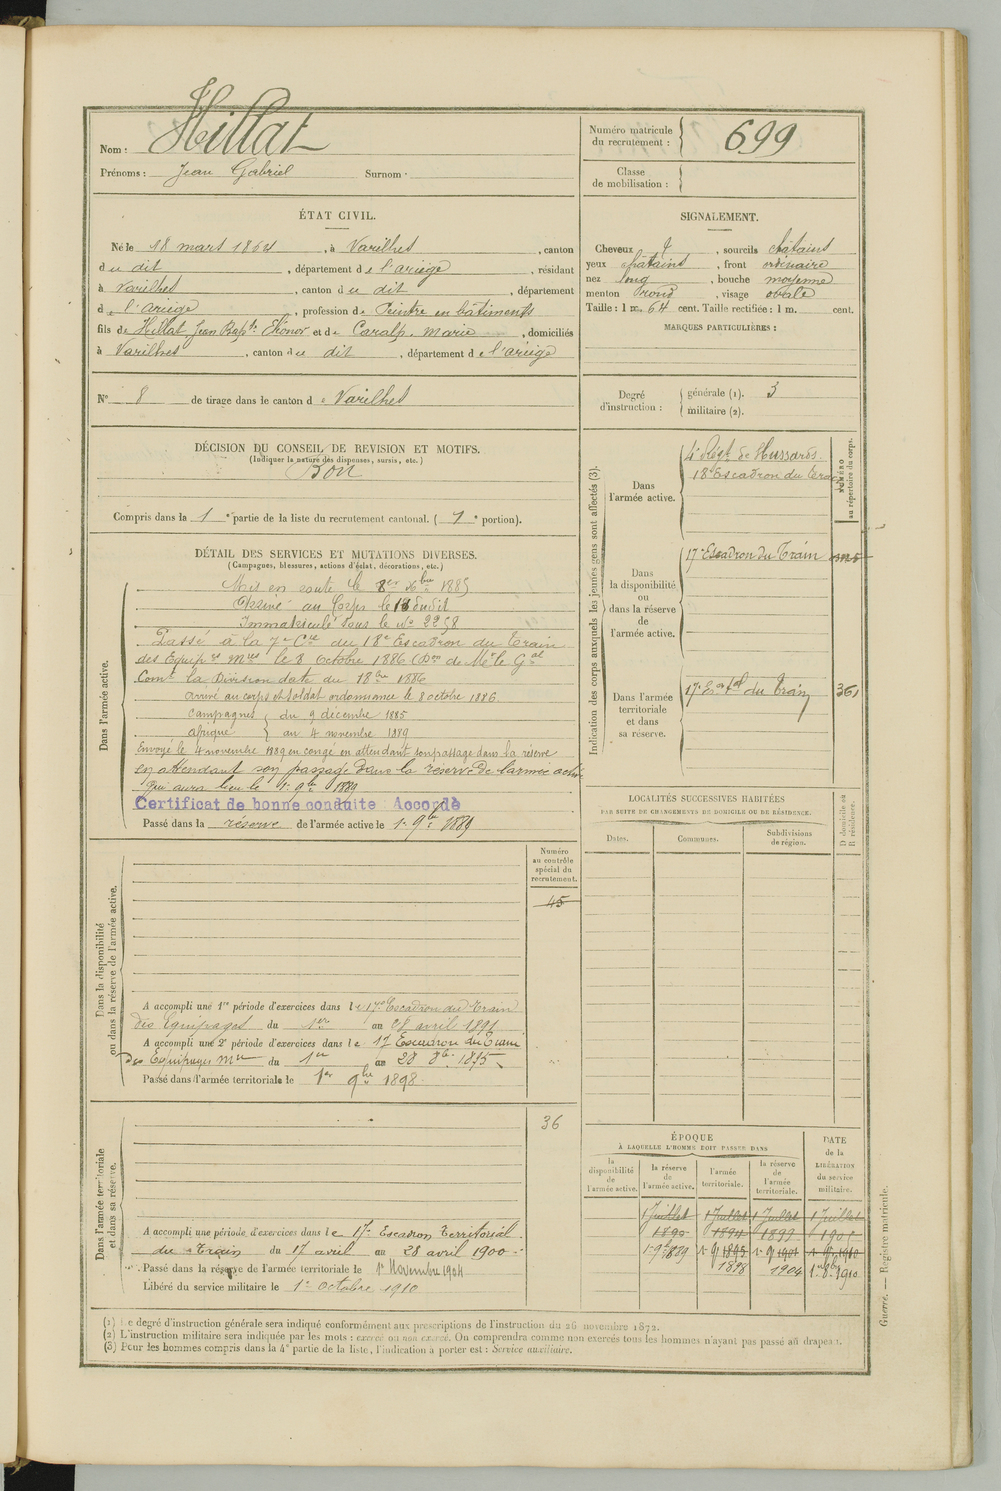 Nom : Hillat
Prénoms : Jean Gabriel Surnom :
Numéro matricule du recrutement : 699
Classe de mobilisation :
ÉTAT CIVIL.
Né le 18 mars 1864, à Varilhes, canton
du dit, département de l'ariège, résidant
à Varilhes, canton du dit, département
de l'ariège, profession de Peintre en bâtiments
fils de Hillat Jean Bapte et de Caralp, Marie, domiciliés
à Varilhes, canton du dit, département de l'ariège
N° 8 de tirage dans le canton de Varilhes
SIGNALEMENT.
Cheveux, sourcils châtains
yeux châtains, front ordinaire
nez long, bouche moyenne
menton rond, visage ovale
Taille : 1 m. 64 cent. Taille rectifiée : 1 m. cent.
MARQUES PARTICULIÈRES :
Degré d'instruction :
générale (1). 3
militaire (2).
DÉCISION DU CONSEIL DE REVISION ET MOTIFS.
(Indiquer la nature des dispenses, sursis, etc.)
Bon
Compris dans la 1e partie de la liste du recrutement cantonal. (1e portion).
DÉTAIL DES SERVICES ET MUTATIONS DIVERSES.
(Campagnes, blessures, actions d'éclat, décorations, etc.)
Dans l'armée active.
Mis en route le 8 Xbre 1885
Arrivé au Corps le 18 dudit
Immatriculé sous le No 2258
Passé à la 7e Cie du 18e Escadron du Train
des Equipes Mres le 8 Octobre 1886 (Don de Mr le Gal
Comt la Division date du 1886
arrivé au corps et soldat ordonnance le 8 octobre 1886
campagnes du 9 décembre 1885
afrique au 4 novembre 1889
Envoyé le 4 novembre 1889 en congé en attendant son passage dans la réserve
en attendant son passage dans la réserve de l'armée active
qui aura lieu le 1er 9bre 1889
Certificat de bonne conduite : Accordé
Passé dans la réserve de l'armée active le 1er 9bre 1889
Indication des corps auxquels les jeunes gens sont affectés (3).
NUMÉRO au répertoire du corps.
Dans l'armée active.
4e Régt de Hussards
18e Escadron du train
Dans la disponibilité ou dans la réserve de l'armée active.
17e Escadron du Train
Dans l'armée territoriale et dans sa réserve.
17e Eon tal du Train 361
LOCALITÉS SUCCESSIVES HABITÉES
PAR SUITE DE CHANGEMENTS DE DOMICILE OU DE RÉSIDENCE.
Dates. Communes. Subdivisions de région.
D domicile ou R résidence.
Dans la disponibilité ou dans la réserve de l'armée active.
Numéro au contrôle spécial du recrutement.
45
A accompli une 1re période d'exercices dans le 17e Escadron du Train
des Equipages du 1er au 28 avril 1891
A accompli une 2e période d'exercices dans le 17 Escadron du Train
des Equipages Mres du 1er au 28 8bre 1895
Passé dans l'armée territoriale le 1er 9bre 1898
Dans l'armée territoriale et dans sa réserve.
36
A accompli une période d'exercices dans le 17e Escadron Territorial
du Train du 17 avril au 28 avril 1900
Passé dans la réserve de l'armée territoriale le 1er Novembre 1904
Libéré du service militaire le 1er octobre 1910
ÉPOQUE
À LAQUELLE L'HOMME DOIT PASSER DANS
DATE de la LIBÉRATION du service militaire.
la disponibilité de l'armée active.
la réserve de l'armée active.
l'armée territoriale.
la réserve de l'armée territoriale.
1 Juillet 1 Juillet 1 Juillet 1 Juillet
1890 1894 1899 1905
1er 9bre 1889 1er 9 1895 1er 9 1901 1910
1898 1904 1er 8bre 1910
(1) Le degré d'instruction générale sera indiqué conformément aux prescriptions de l'instruction du 26 novembre 1872.
(2) L'instruction militaire sera indiquée par les mots : exercé ou non exercé. On comprendra comme non exercés tous les hommes n'ayant pas passé au drapeau.
(3) Pour les hommes compris dans la 4e partie de la liste, l'indication à porter est : Service auxiliaire.
Guerre. — Registre matricule.